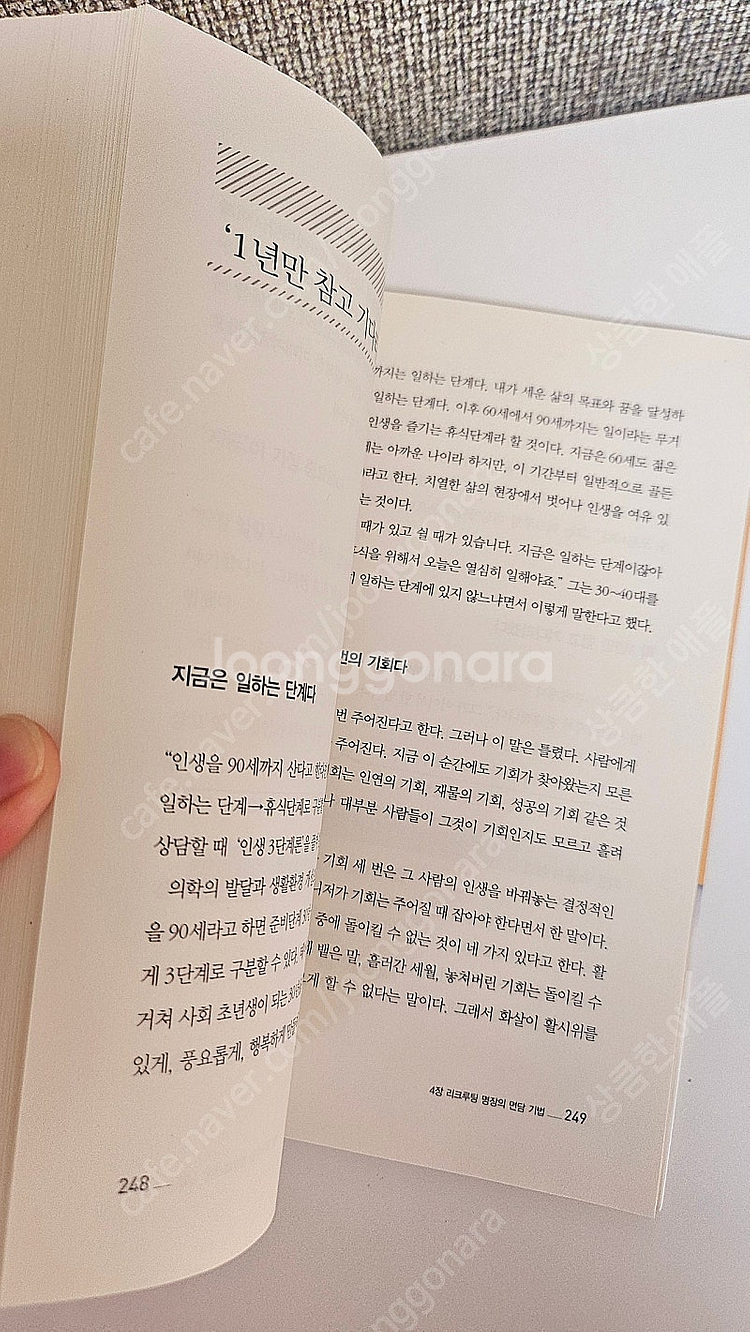 ‘1년만 참고
지금은 일하는 단계다
“인생을 90세까지 산다고
일하는 단계→휴식단계로
상담할 때 ‘인생 3단계론’을
의학의 발달과 생활환경
을 90세라고 하면 준비단계
게 3단계로 구분할 수 있다.
거쳐 사회 초년생이 되는
있게, 풍요롭게, 행복하게
248
까지는 일하는 단계다. 내가 세운 삶의 목표와 꿈을 달성하
일하는 단계다. 이후 60세에서 90세까지는 일이라는 무거
인생을 즐기는 휴식단계라 할 것이다. 지금은 60세도 젊은
는 아까운 나이라 하지만, 이 기간부터 일반적으로 골든
라고 한다. 치열한 삶의 현장에서 벗어나 인생을 여유 있
는 것이다.
때가 있고 쉴 때가 있습니다. 지금은 일하는 단계이잖아
식을 위해서 오늘은 열심히 일해야죠.” 그는 30~40대를
일하는 단계에 있지 않느냐면서 이렇게 말한다고 했다.
번의 기회다
번 주어진다고 한다. 그러나 이 말은 틀렸다. 사람에게
주어진다. 지금 이 순간에도 기회가 찾아왔는지 모른
회는 인연의 기회, 재물의 기회, 성공의 기회 같은 것
대부분 사람들이 그것이 기회인지도 모르고 흘려
기회 세 번은 그 사람의 인생을 바꿔놓는 결정적인
니저가 기회는 주어질 때 잡아야 한다면서 한 말이다.
중에 돌이킬 수 없는 것이 네 가지 있다고 한다. 활
뱉은 말, 흘러간 세월, 놓쳐버린 기회는 돌이킬 수
게 할 수 없다는 말이다. 그래서 화살이 활시위를
4장 리크루팅 명장의 면담 기법 249
Joonggonara
cafe.naver.com/joonggonara
상큼한 애플